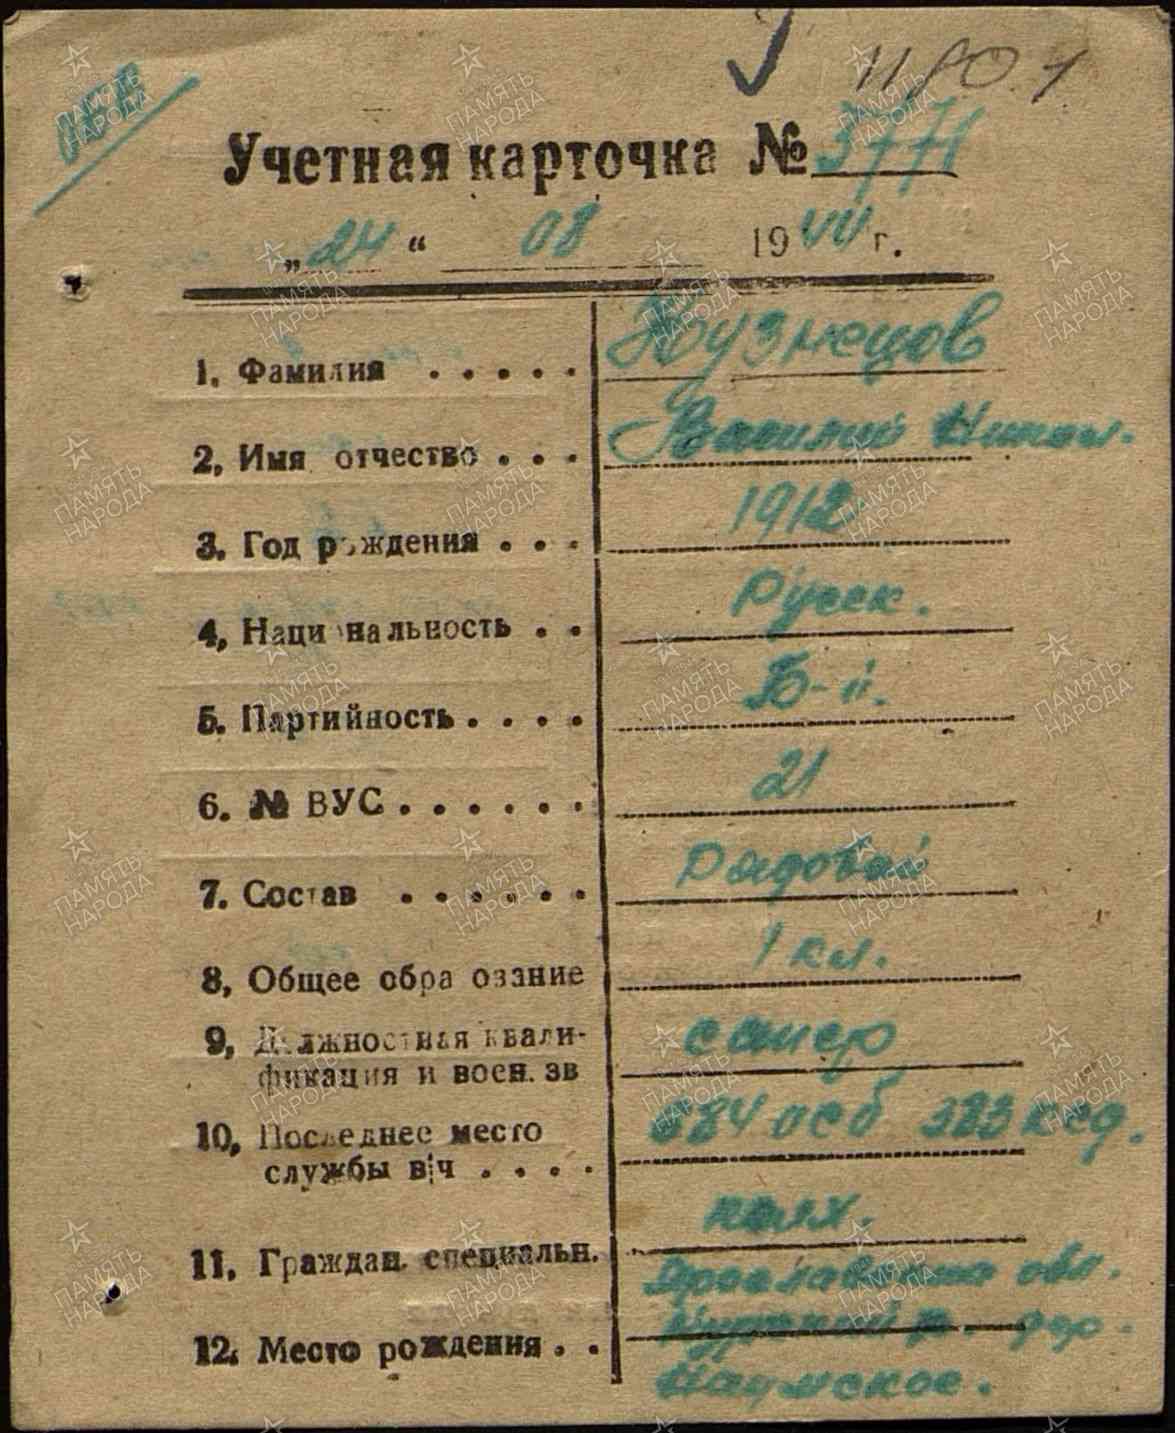 11801
Учетная карточка № 3771
„24“ 08 1944 г.
1. Фамилия . . . . . Кузнецов
2, Имя отчество . . . Василий Никол.
3. Год рождения . . . 1912
4, Национальность . . Русск.
5. Партийность . . . . Б-п.
6. № ВУС . . . . . . 21
7. Состав . . . . . . Рядовой
8, Общее образование 1 кл.
9, Должностная квали-
фикация и воен. зв сапер
10, Последнее место
службы в/ч . . . . 684 осб 383 ксд.
11. Граждан. специальн. колх.
12. Место рождения . . Ярославская обл.
р. дер.
Наумское.
ПАМЯТЬ НАРОДА